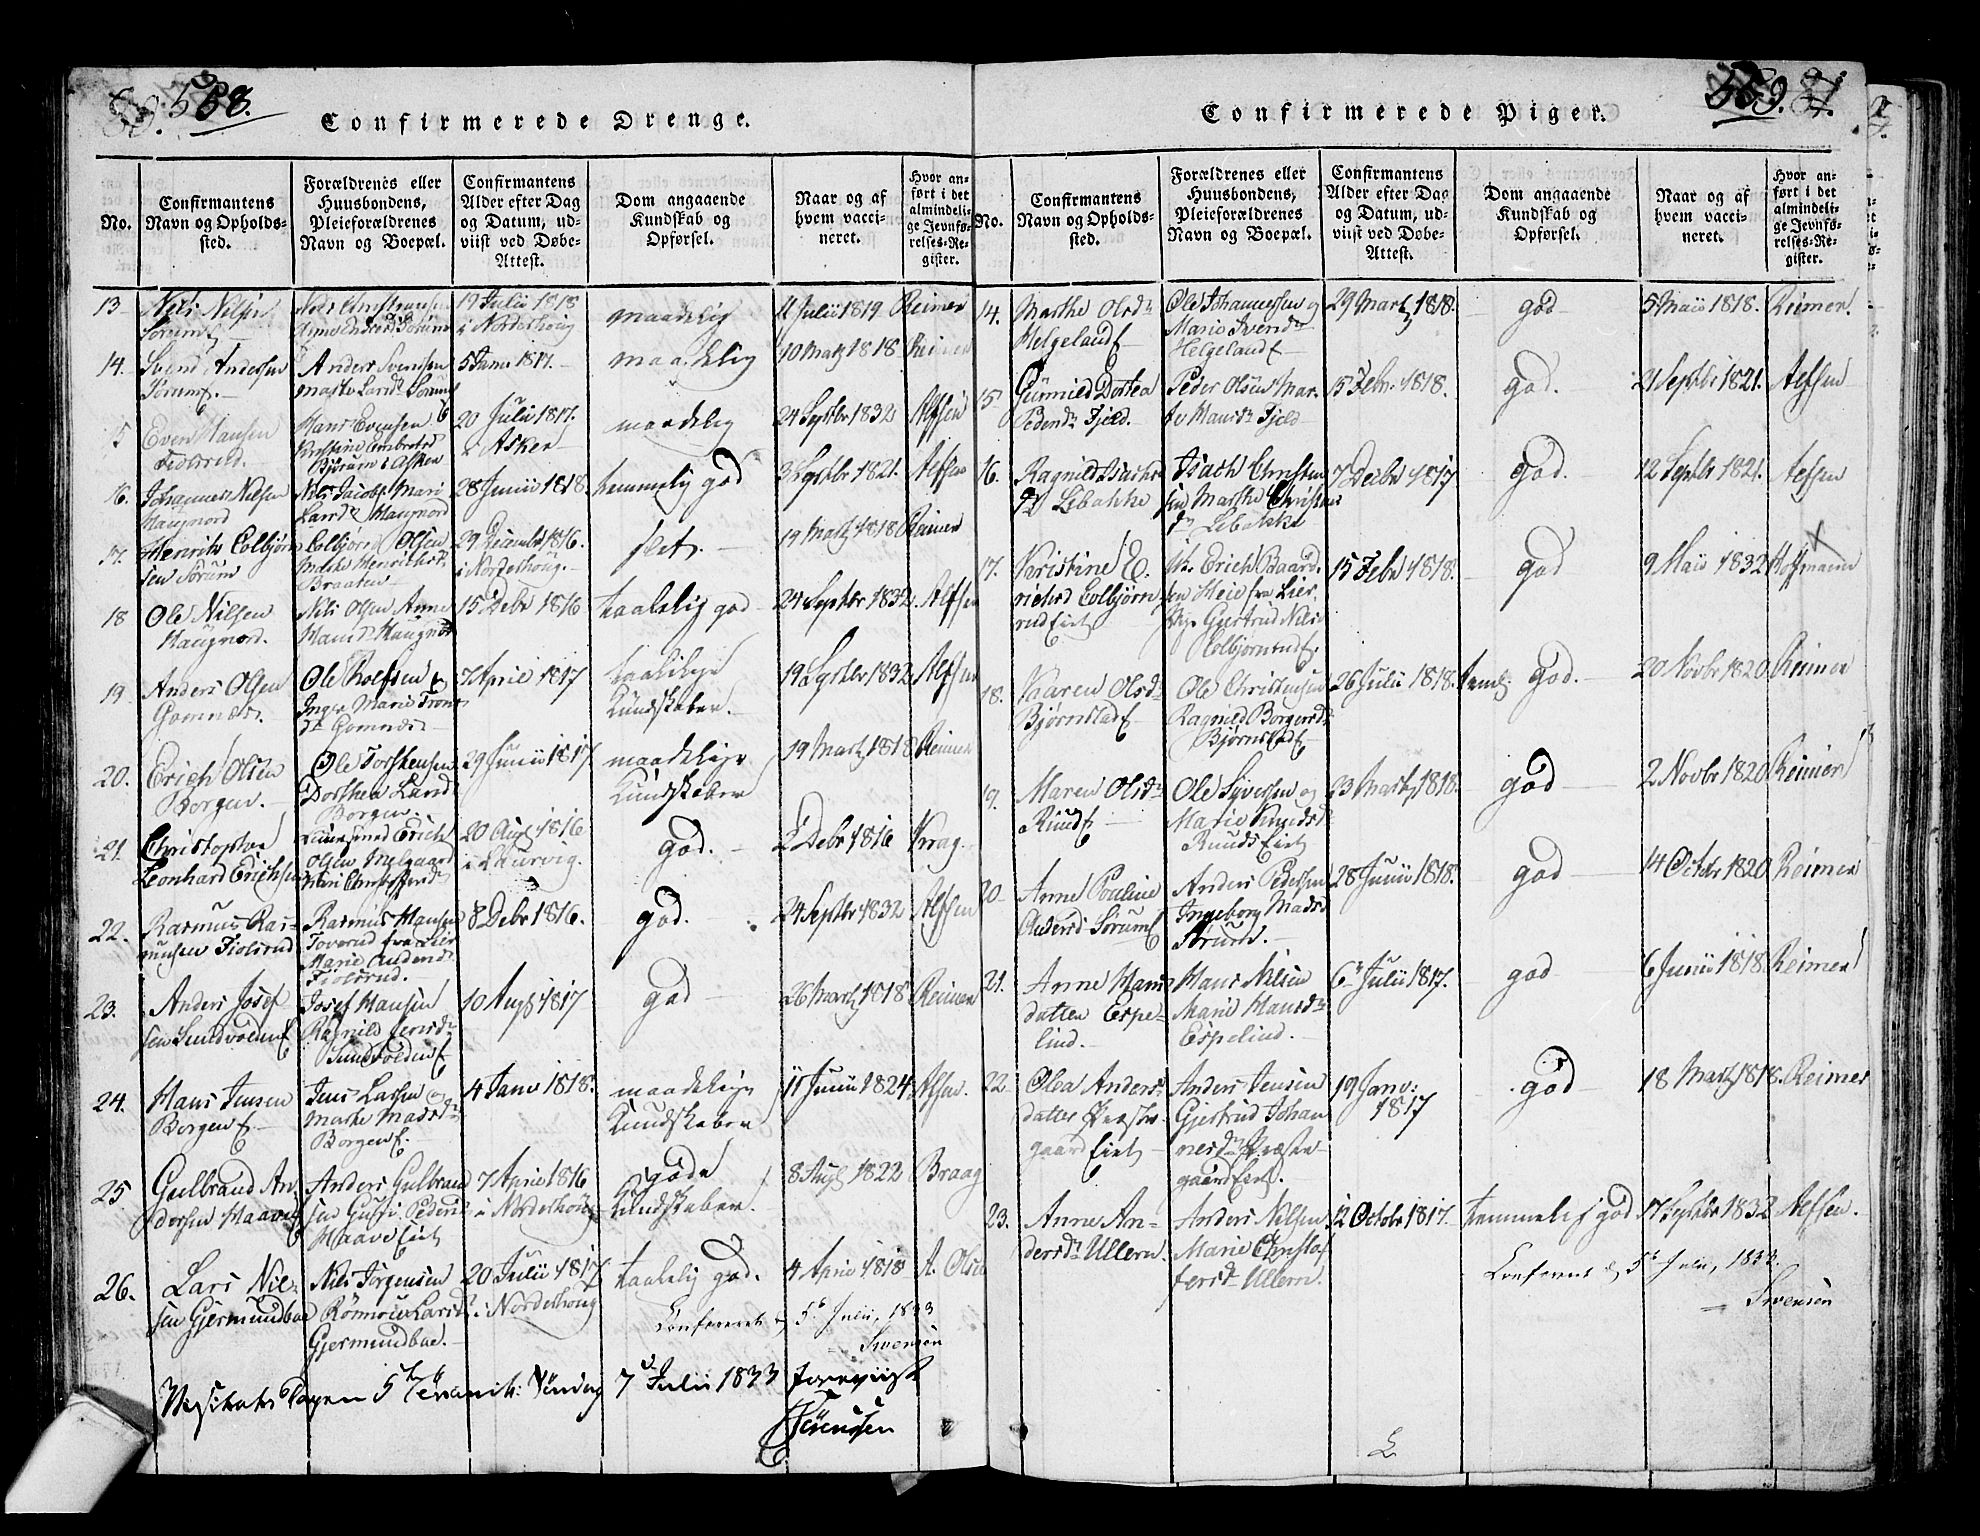 80. 558.
Confirmerede Drenge.
No.
Confirmantens
Navn og Opholds-
sted.
Forældrenes eller
Huusbondens,
Pleieforældrenes
Navn og Boepæl.
Confirmantens
Alder efter Dag
og Datum, ud-
viist ved Døbe-
Attest.
Dom angaaende
Kundskab og
Opførsel.
Naar og af
hvem vacci-
neret.
Hvor an-
ført i det
almindeli-
ge Jevnfø-
relses-Re-
gister.
13
Niels Nilsen
Sørum
19 Julii 1818
i Norderhoug
maadelig
11 Julii 1819
Reimer
14.
Svend Andersen
Sørum
Anders Svensen
Marthe Larsd. Sørum
5 Janv 1817.
maadelig
10 Martz 1818
Reimer
5
Even Hansen
Fiolsrud.
Hans Evensen
Kirstine Embretsd
Bjørum i Asker
20 Julii 1817.
i Asker
maadelig
24 Septbr 1832
Alfsen
16.
Johannes Nilsen
Haugnord
Nils Jacobs. Mari
Larsd. Haugnord
28 Junii 1818.
temmelig god
3 Septbr 1821.
Alfsen
17.
Henrik Colbjørn
sen Sørum
Colbjørn Olsen
Marthe Henrichsd.
Braaten
29 Decembr 1816.
i Norderhoug.
slet.
19 Martz 1818
Reimer
18
Ole Nilsen
Haugnord.
Nils Olsen Anne
Hansd. Haugnord
15 Debr 1816
taalelig god
24 Septbr 1832
Alfsen
19
Anders Olsen
Gomnæs.
Ole Rolfsen &
Inger Marie Trons
dr Gomnæs
7 April 1817
taalelige
Kundskaber.
19 Septbr 1832
Alfsen
20.
Erich Olsen
Borgen.
Ole Torstensen
Dorthea Larsd
Borgen
29 Junii 1817
maadelige
Kundskaber
19 Martz 1818
Reimer
21.
Christopher
Leonhard Erichsen
20 Aug 1816
i Laurvig.
god.
2 Debr 1816
Krag
22.
Rasmus Ras-
mussen Fiolsrud
Rasmus Hansen
Toverud fra Lier
Marie Andersd.
Fiolsrud.
8 Debr 1816.
god.
24 Septbr 1832
Alfsen
23.
Anders Josef
sen Sundvolden E
Josef Hansen
Ragnild Jensd.
Sundvolden E
10 Aug 1817
god
26 Martz 1818
Reimer
24.
Hans Jensen
Borgen E.
Jens Larsen og
Marthe Madsd.
Borgen E.
4 Janv 1818.
maadelige
Kundskaber
11 Junii 1824
Alfsen.
25
Gulbrand An
dersen Haave E
Anders Gulbrand
sen Peders
Haave Eiet
7 April 1816
i Norderhoug
gode
Kundskaber.
8 Aug 1822
Braag
26.
Lars Nil-
sen Gjermundboe
Nils Jørgensen
Rønnoue Larsd.
Gjermundboe.
20 Julii 1817
i Norderhoug
taalelig god.
4 April 1818
A. Olsen
Confereret d 5te Julii, 1833
Swensen
Visitats Dagen 5te Søndag 7d Julii 1833 foreviist
Sørensen
Confirmerede Piger.
559. 81.
No.
Confirmantens
Navn og Opholds-
sted.
Forældrenes eller
Huusbondens,
Pleieforældrenes
Navn og Boepæl.
Confirmantens
Alder efter Dag
og Datum, ud-
viist ved Døbe-
Attest.
Dom angaaende
Kundskab og
Opførsel.
Naar og af
hvem vacci-
neret.
Hvor an-
ført i det
almindeli-
ge Jevnfø-
relses-Re-
gister.
14.
Marthe Olsdr
Helgeland E
Ole Johannessen og
Marie Svendsdr
Helgeland E
29 Martz 1818.
god
5 Maii 1818.
Reimer.
15
Gunnild Dortea
Pedersdr Fjeld.
Peder Olsen Mar-
te Hansdr Fjeld
15 Febr. 1818.
god.
21 Septbr 1821.
Alfsen
16.
Ragnild Isachs
dr Lebakke
Isach Christen
sen Marthe Christens
dr Lebakke
7 Decbr 1817
god.
12 Septbr 1821.
Alfsen
17.
Kristine E.
richsd Colbjørns
rud Eiet
Erich Baard
sen Heie fra Lier
Pige Giertrud Nils
Colbjørnsrud E.
15 Febr 1818.
god
9 Maii 1832
Hoffmann
18.
Karen Olsdr
Bjørnstad E
Ole Christensen
Ragnild Borgersdr
Bjørnstad E
26 Julii 1818.
teml. god.
20 Novbr 1820
Reimer
19.
Maren Olsdr
Ruud E
Ole Syversen og
Marie Knudsd
Ruuds Eiet
23 Martz 1818.
god
2 Novbr 1820
Reimer
20
Anne Pauline
Andersd Sørum E
Anders Pedersen
Ingeborg Madsd
Sørum.
28 Junii 1818.
god
14 Octobr 1820
Reimer
21.
Anne Hans
datter Espe-
lind.
Hans Nilsen
Marie Hansdr
Espelind.
6 Julii 1817.
god
6 Junii 1818.
Reimer
22
Olea Anders
datter Præste-
gaard Eiet
Anders Jensen
Gjertrud Johan
nesdr Præste-
gaard Eiet.
19 Janv:
1817
god
18 Martz 1818.
Reimer
23.
Anne An-
dersdr Ullern.
Anders Nilsen
Marie Christof
fersdr Ullern.
12 Octobr 1817.
temmelig god
17 Septbr 1832
Alfsen.
Confereret d 5te Julii, 1833.
Swensen